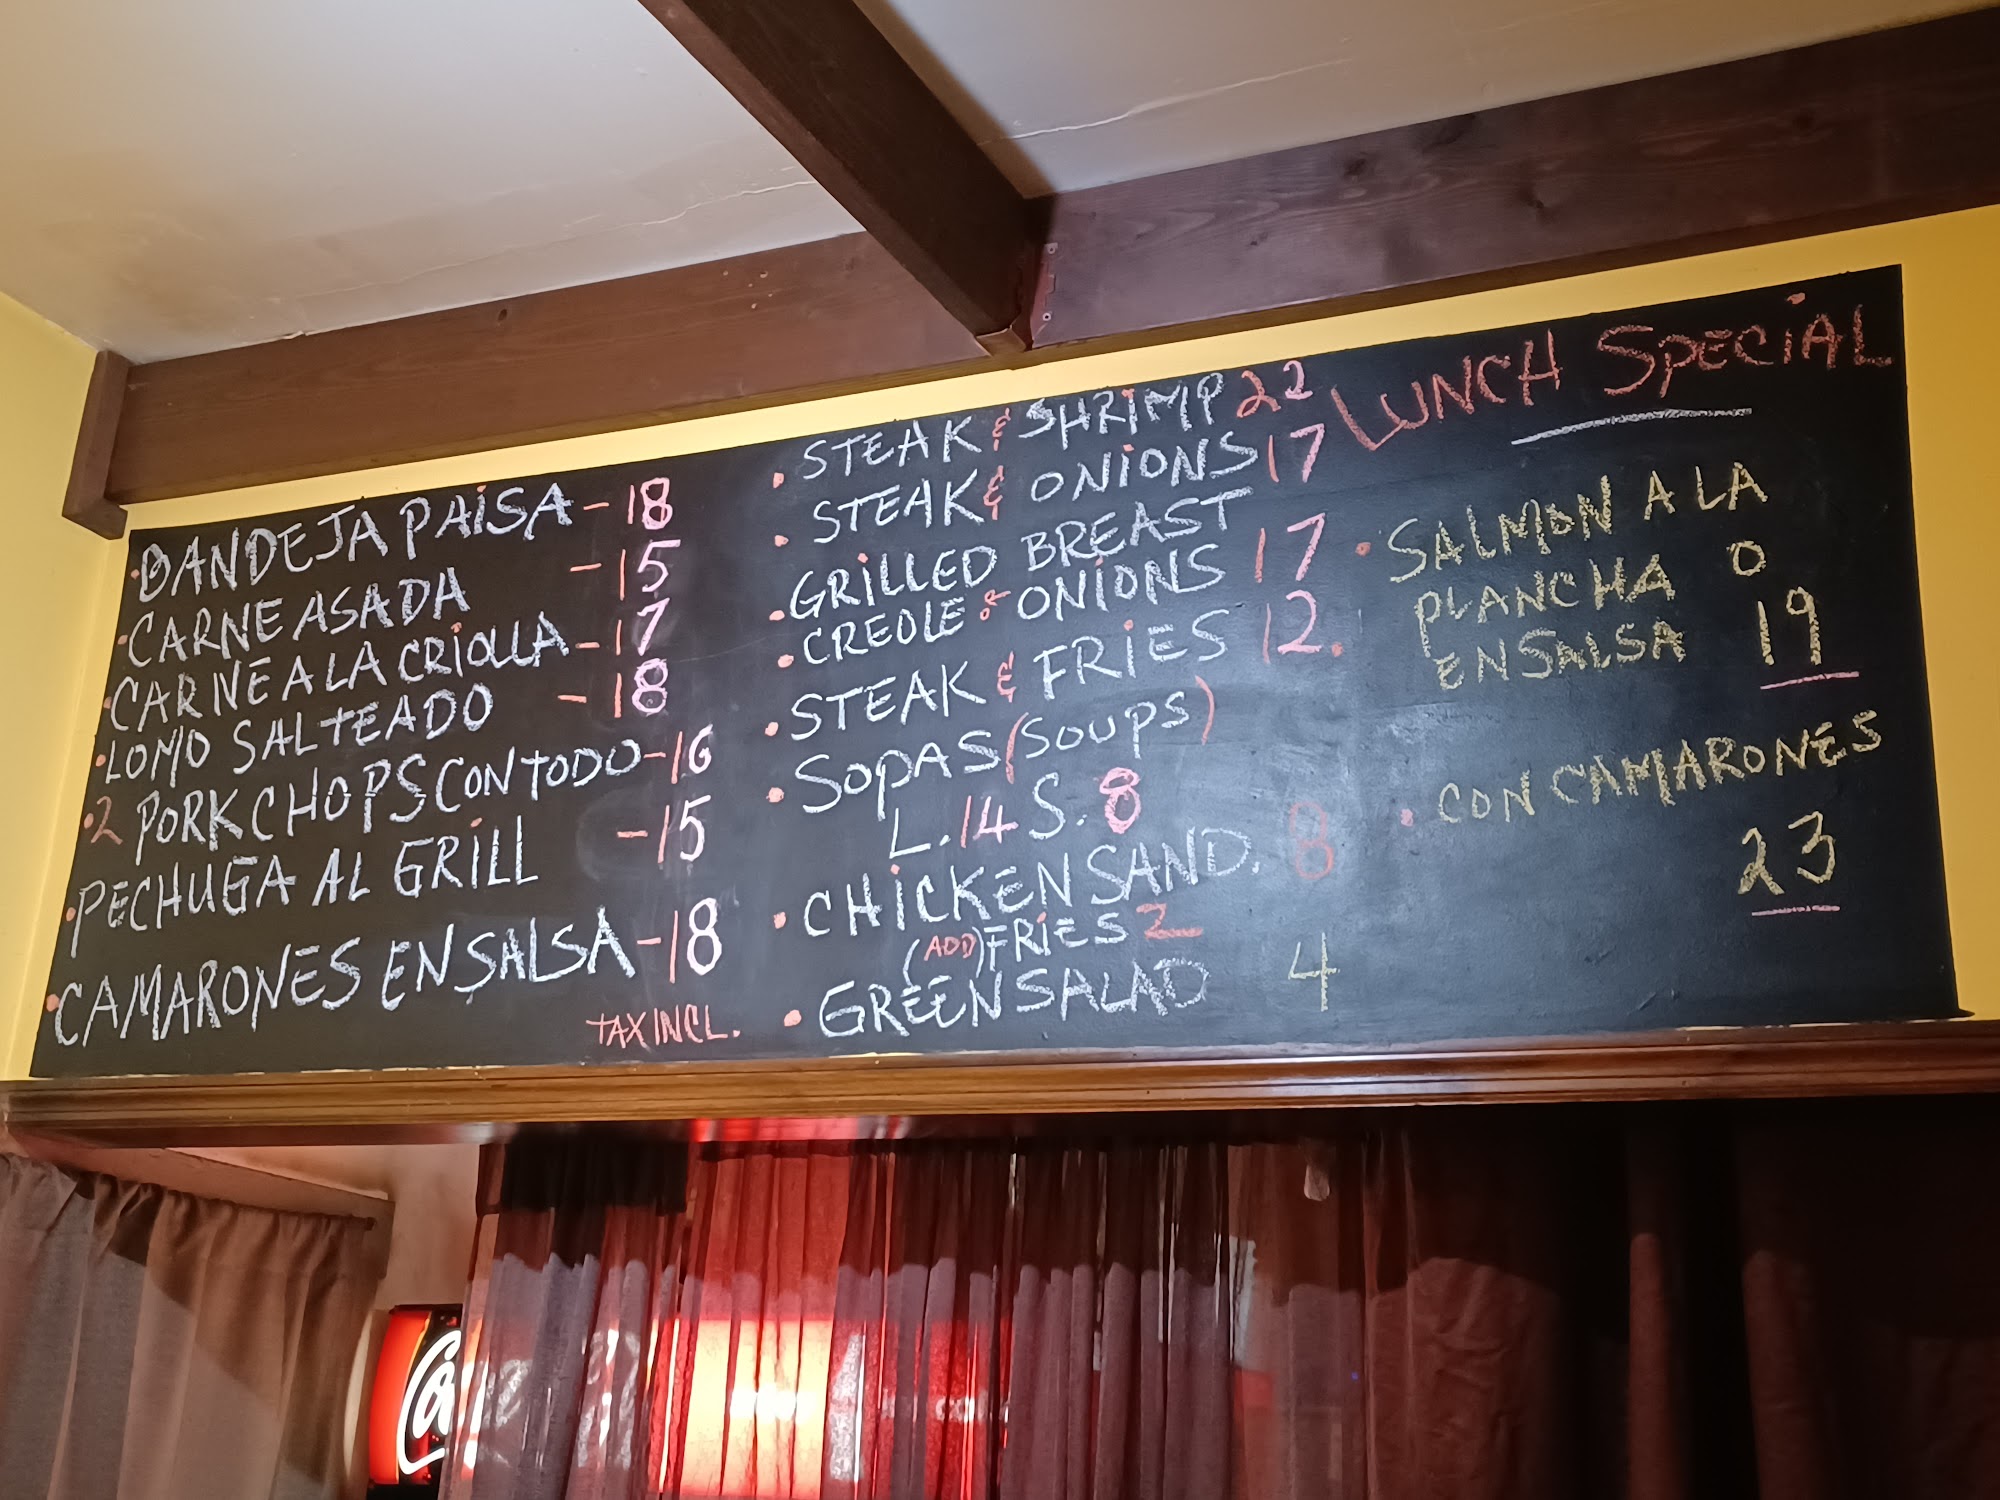 • BANDEJA PAISA - 18
• CARNE ASADA - 15
• CARNE A LA CRIOLLA - 17
• LOMO SALTEADO - 18
• 2 PORK CHOPS CON TODO - 16
• PECHUGA AL GRILL - 15
• CAMARONES EN SALSA - 18
TAX INCL.
• STEAK & SHRIMP 22
• STEAK & ONIONS 17
• GRILLED BREAST
• CREOLE & ONIONS 17
• STEAK & FRIES 12.
• SOPAS (SOUPS)
L. 14 S. 8
• CHICKEN SAND. 8
(ADD) FRIES 2
• GREEN SALAD 4
LUNCH SPECIAL
• SALMON A LA
PLANCHA O
EN SALSA 19
• CON CAMARONES
23